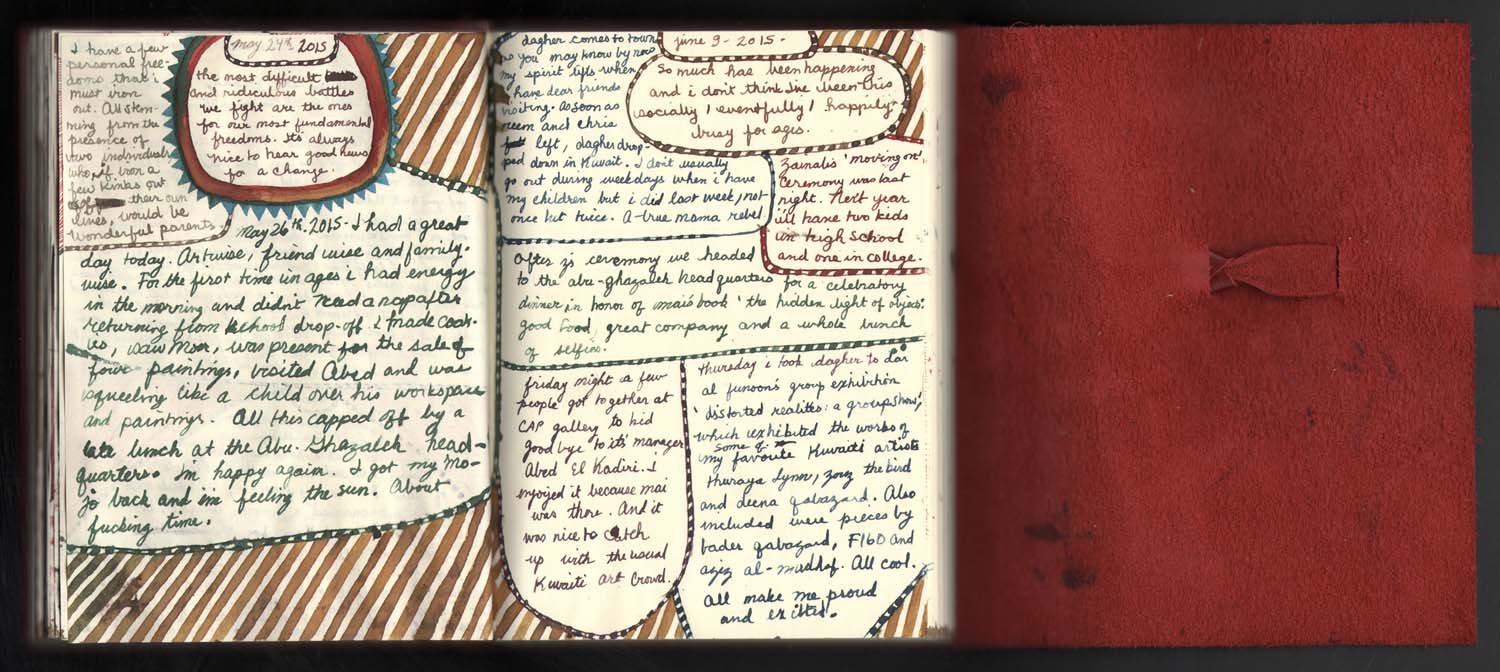 I have a few
personal free-
doms that i
must iron
out. All stem-
ming from the
presence of
two individuals
who, if iron a
few kinks out
of their own
lives, would be
wonderful parents.
may 24th 2015
the most difficult
and ridiculous battles
we fight are the ones
for our most fundamental
freedoms. It's always
nice to hear good news
for a change.
May 26th. 2015 - I had a great
day today. Artwise, friend wise and family-
wise. For the first time in ages i had energy
in the morning and didn't need a nap after
returning from school drop-off. I made cook-
ies, saw Mon, was present for the sale of
four paintings, visited Abed and was
squeeling like a child over his workspace
and paintings. All this capped off by a
late lunch at the Abu-Ghazaleh head-
quarters. Im happy again. I got my mo-
jo back and im feeling the sun. About
fucking time.
dagher comes to town
so you may know by now
my spirit lifts when
i have dear friends
visiting. As soon as
reem and chris
left, dagher drop-
ped down in Kuwait. I don't usually
go out during weekdays when i have
my children but i did last week, not
once but twice. A true mama rebel
june 9 - 2015 -
So much has been happening
and i don't think i've been this
socially / eventfully / happily
busy for ages.
Zainab's 'moving on'
ceremony was last
night. Next year
i'll have two kids
in high school
and one in college.
After z's ceremony we headed
to the abu-ghazaleh headquarters for a celebratory
dinner in honor of mai's book 'the hidden light of objects'.
good food, great company and a whole bunch
of selfies.
friday night a few
people got together at
CAP gallery to bid
good bye to its' manager
Abed El Kadiri. I
enjoyed it because mai
was there. And it
was nice to catch
up with the usual
Kuwaiti art crowd.
thursday i took dagher to Dar
al funoon's group exhibition
'distorted realites: a group show,'
which exhibited the works of
some of
my favorite Kuwaiti artists
thuraya Lynn, zorg the bird
and deena qabazard. Also
included were pieces by
bader qabazard, F16D and
aziz al-mudhaf. All cool.
All make me proud
and excited.